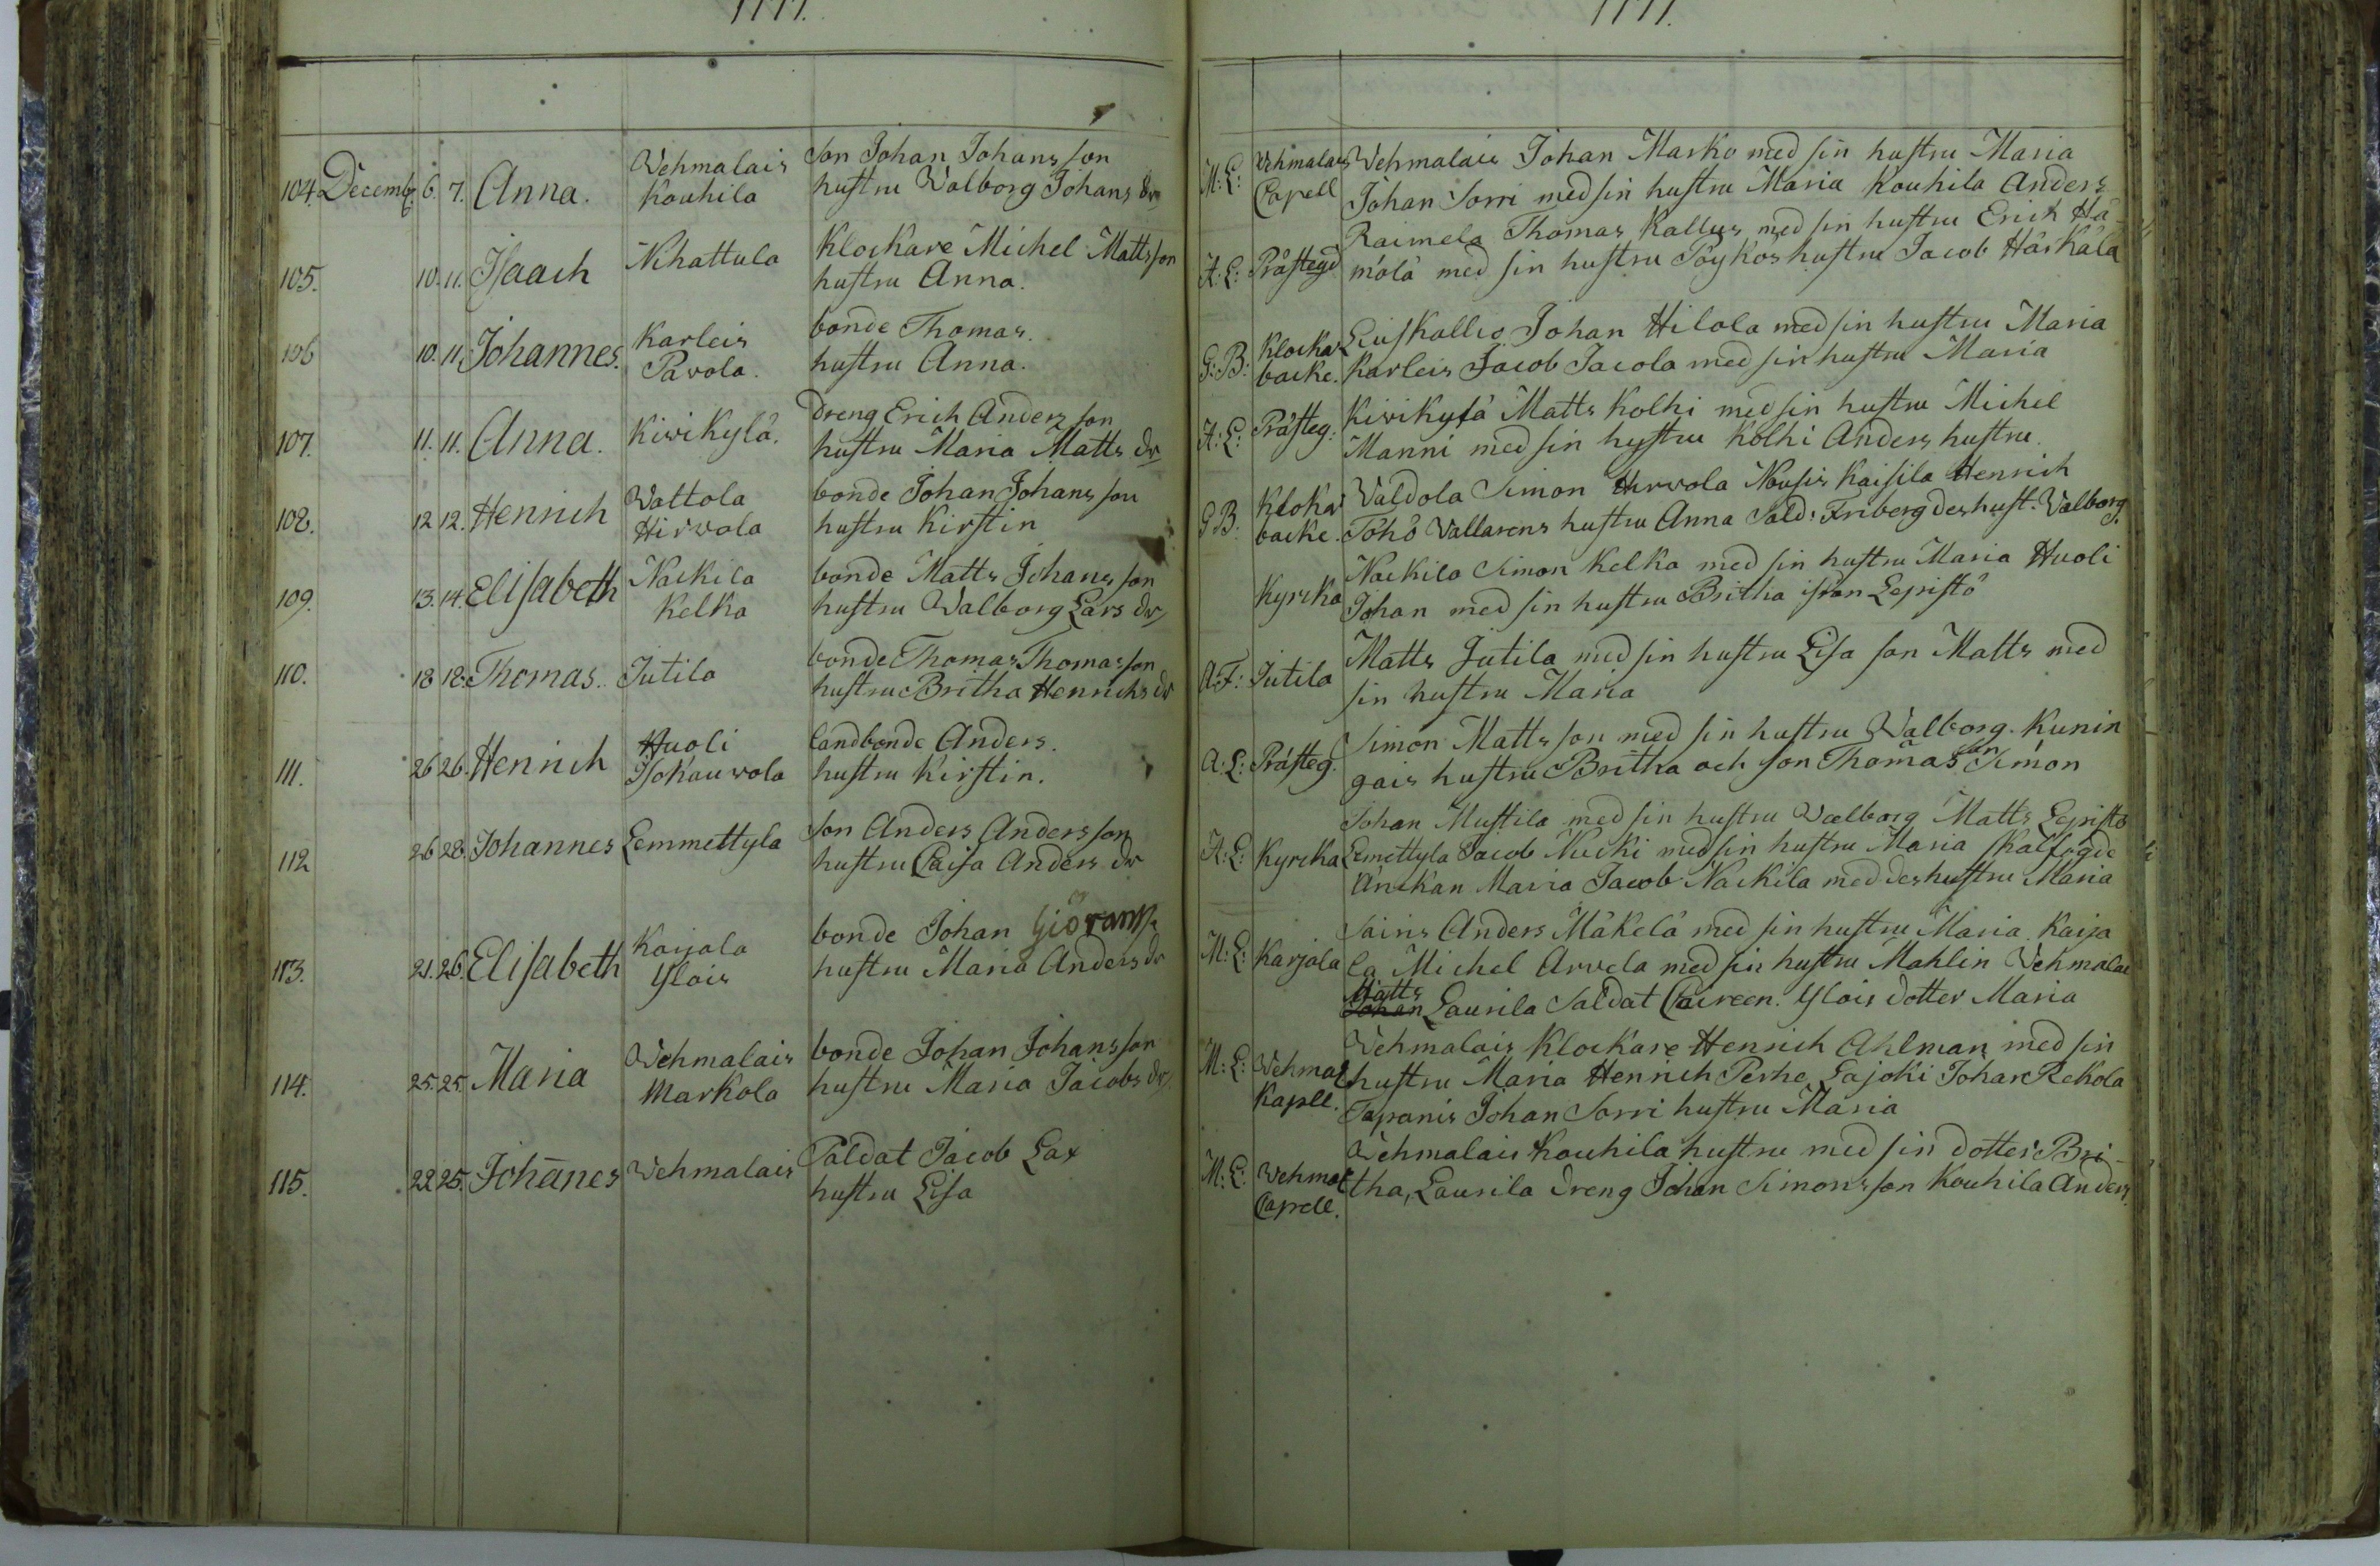 1777.
104. Decemb: 6. 7. Anna. Wehmalais Son Johan Johans son
Kouhila hustru Walborg Johans dr
105. 10. 11. Isaach Nihattula Klockare Michel Matts son
hustru Anna.
106 10. 11. Johannes. Karleis bonde Thomas.
Pavola. hustru Anna.
107. 11. 11. Anna. Kivikylä. Dreng Erich Anders son
hustru Maria Matts dr
108. 12 12. Henrich Wattola bonde Johan Johans son
Hirvola hustru Kirstin
109. 13. 14. Elisabeth Nackila bonde Matts Johans son
Kelka hustru Walborg Lars dr
110. 18 18. Thomas. Jutila bonde Thomas Thomas son
hustru Britha Henrichs dr
111. 26 26. Henrich Huoli landbonde Anders.
Isokauvola hustru Kirstin.
112 26 28. Johannes Lemmettyla Son Anders Anders son
hustru Caisa Anders dr
113. 21. 26. Elisabeth Karjala bonde Johan Giörans
Ylois hustru Maria Anders dr
114. 25. 25. Maria Wehmalais bonde Johan Johans son
Markola hustru Maria Jacobs dr
115. 22 25. Johanes Wehmalais Saldat Jacob Lax
hustru Lisa
1777.
M: L: Wehmalais Wehmalais Johan Marko med sin hustru Maria
Capell Johan Sorri med sin hustru Maria Kouhila Anders
Raimela Thomas Kallus med sin hustru Erich Hä-
A: L: Prästegd mälä med sin hustru Pöykös hustru Jacob Härkälä
G: B: Klockar Liuskallio Johan Hilola med sin hustru Maria
backe. Karleis Jacob Jacola med sin hustru Maria
A: L: Prästeg: Kivikylä Matts Kolhi med sin hustru Michel
Manni med sin hustru Kolhi Anders hustru
G B. Klokar Valdola Simon Hirvola Nousis Kaisila Henrich
backe. Töhö Vallarens hustru Anna Sald: Friberg des hust. Valborg.
Nackila Simon Kelka med sin hustru Maria Huoli
Kyrcka Johan med sin hustru Britha Lepistö
A: F: Jutila Matts Jutila med sin hustru Lisa son Matts med
sin hustru Maria
Simon Matts son med sin hustru Walborg. Kunin
A: L: Prästeg. gais hustru Britha och son Thomas son Simon
Johan Mustila med sin hustru Walborg Matts Lepistö
A: L: Kyrcka Lemettyla Jacob Nucki med sin hustru Maria Skalfogde
änckan Maria Jacob Nackila med des hustru Maria
Sains Anders Mäkelä med sin hustru Maria Karja
M: L: Karjala la Michel Arvela med sin hustru Mahlin Vehmalai
Matts
Johan Laurila Saldat Caireen. Ylois dotter Maria
Wehmalais Klockare Henrich Ahlman med sin
M: L: Wehmal hustru Maria Henrich Perhe Lajoki Johan Rekola
Kapell. Tapanis Johan Sorri hustru Maria
Wehmalais Kouhila hustru med sin dotter Bri-
M: L: Wehmal tha, Laurila dreng Johan Simons son Kouhila Anders.
Capell.